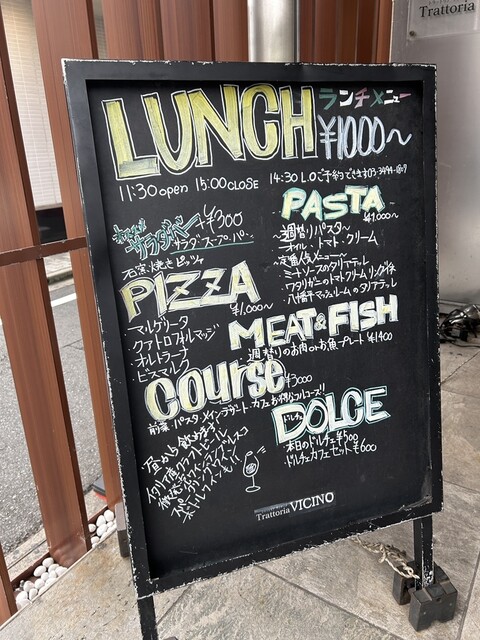 Trattoria
LUNCH ランチメニュー
¥1000〜
11:30 open 15:00 CLOSE 14:30 L.O ご予約できます
サラダバー +¥300
サラダ スープ バー
石窯焼きピッツァ
PIZZA
¥1,000〜
・マルゲリータ
・クアトロフォルマッジ
・オルトラーナ
・ビスマルク
PASTA
¥1,000〜
〜週替りパスタ〜
オイル・トマト・クリーム
〜定番人気メニュー〜
・ミートソースのタリアテッレ
・ワタリガニのトマトクリームリングイネ
・八幡平マッシュルームのタリアテッレ
MEAT & FISH
週替りのお肉orお魚プレート ¥1400
Course
¥3000
前菜・パスタ・メイン・デザート・カフェ お得なフルコース!!
昼から飲めます
DOLCE
ドルチェ
・本日のドルチェ ¥500
・ドルチェカフェセット ¥600
Trattoria VICINO